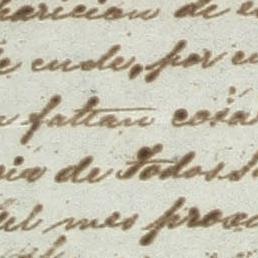 paricion de e
e ende, por e
fattan cosa
ria de Todos S
del mes prox